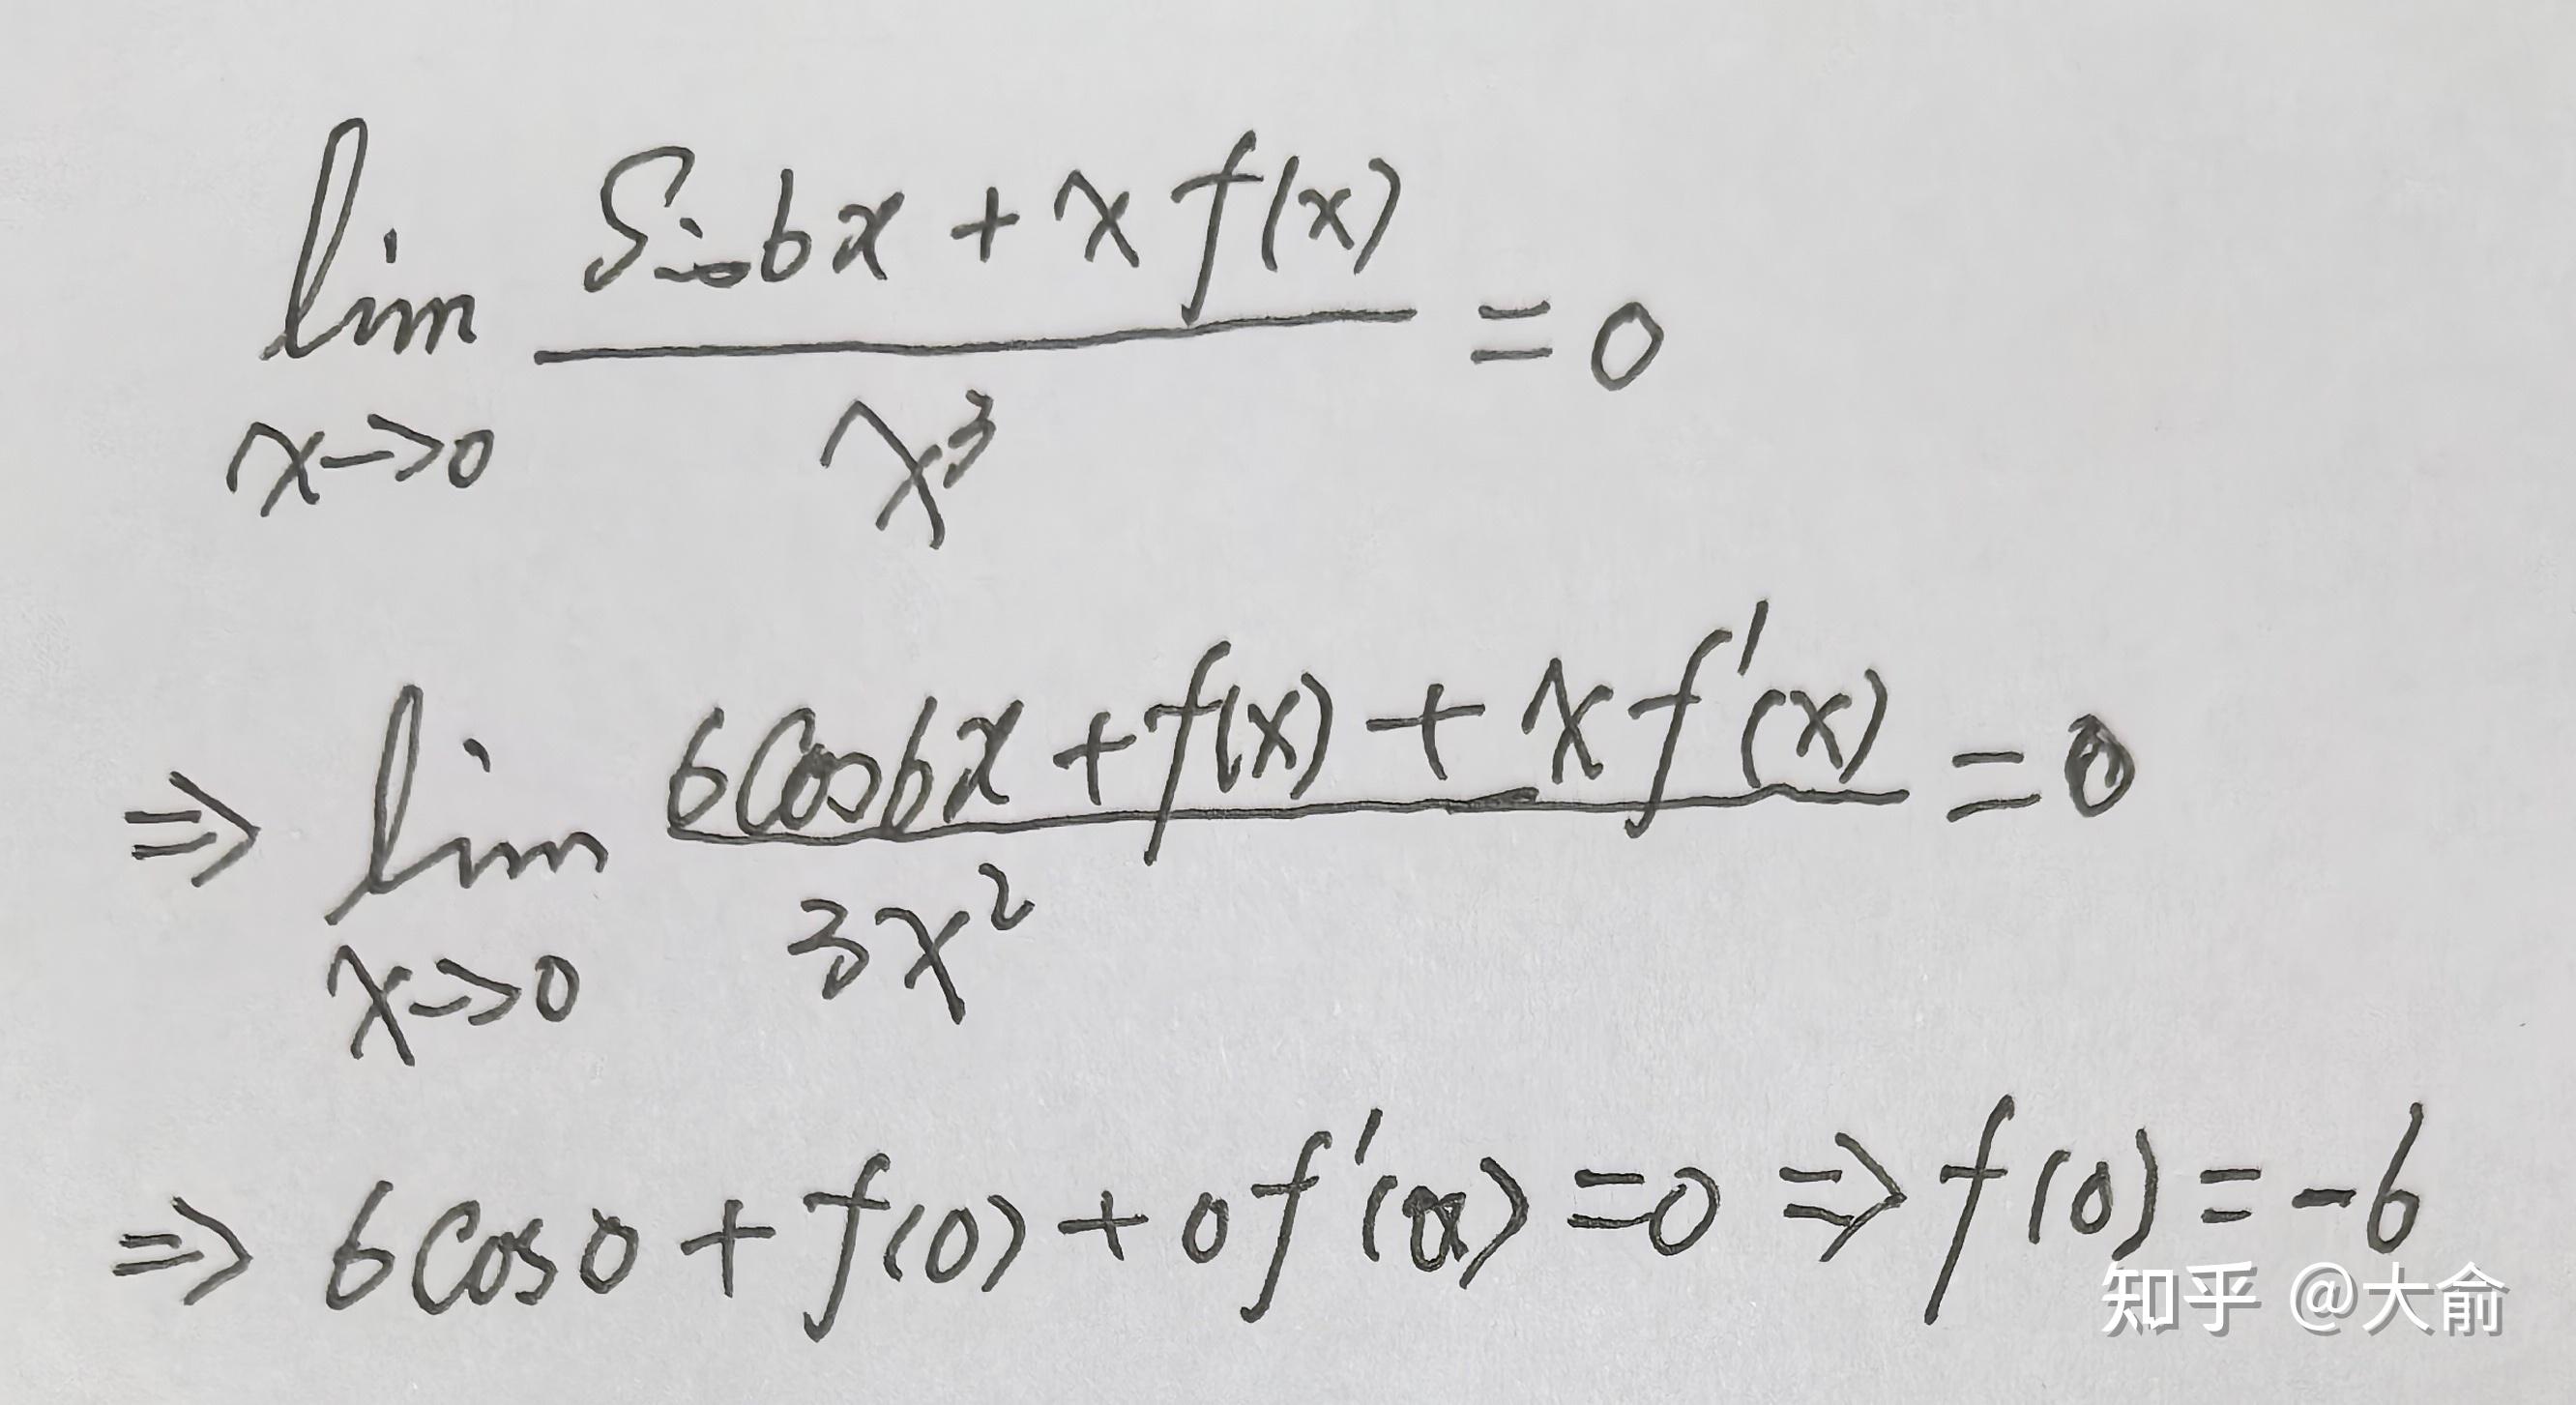 lim x→0 (sin6x + x f(x)) / x³ = 0
⇒ lim x→0 (6cos6x + f(x) + x f'(x)) / 3x² = 0
⇒ 6cos0 + f(0) + 0f'(0) = 0 ⇒ f(0) = -6
知乎 @大俞